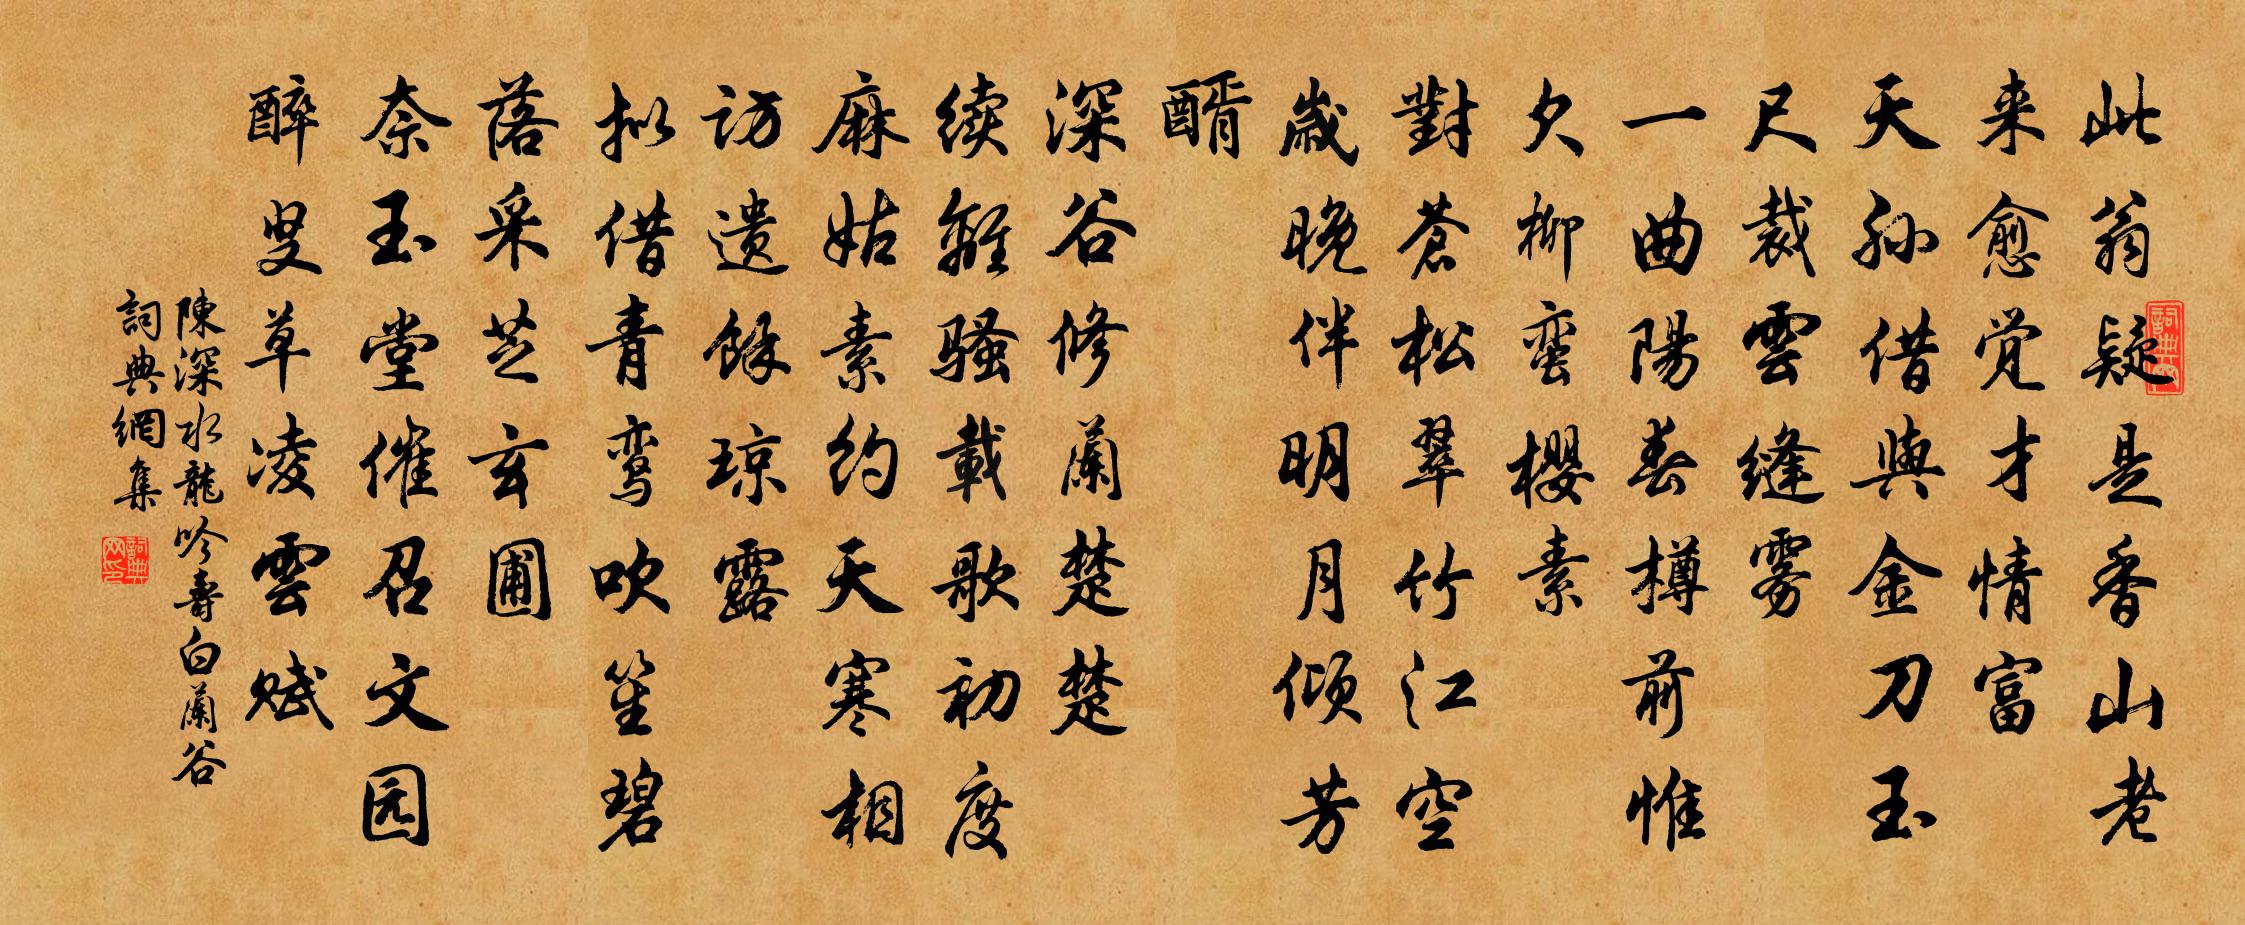 此翁疑是香山老
来愈觉才情富
天孙借與金刀玉
尺裁雲縫雾
一曲陽春樽前惟
欠柳蛮樱素
對蒼松翠竹江空
歲晚伴明月傾芳
醑
深谷修蘭楚楚
续離骚載歌初度
麻姑素约天寒相
访遗餘琼露
拟借青鸾吹笙碧
落采芝玄圃
奈玉堂催召文园
醉叟草凌雲赋
陳深水龍吟壽白蘭谷
詞典網集